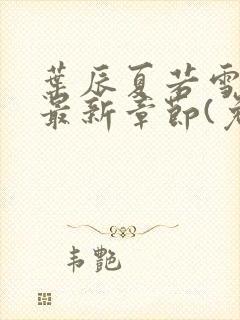 葉辰夏若雪
最新章節(
韦艷